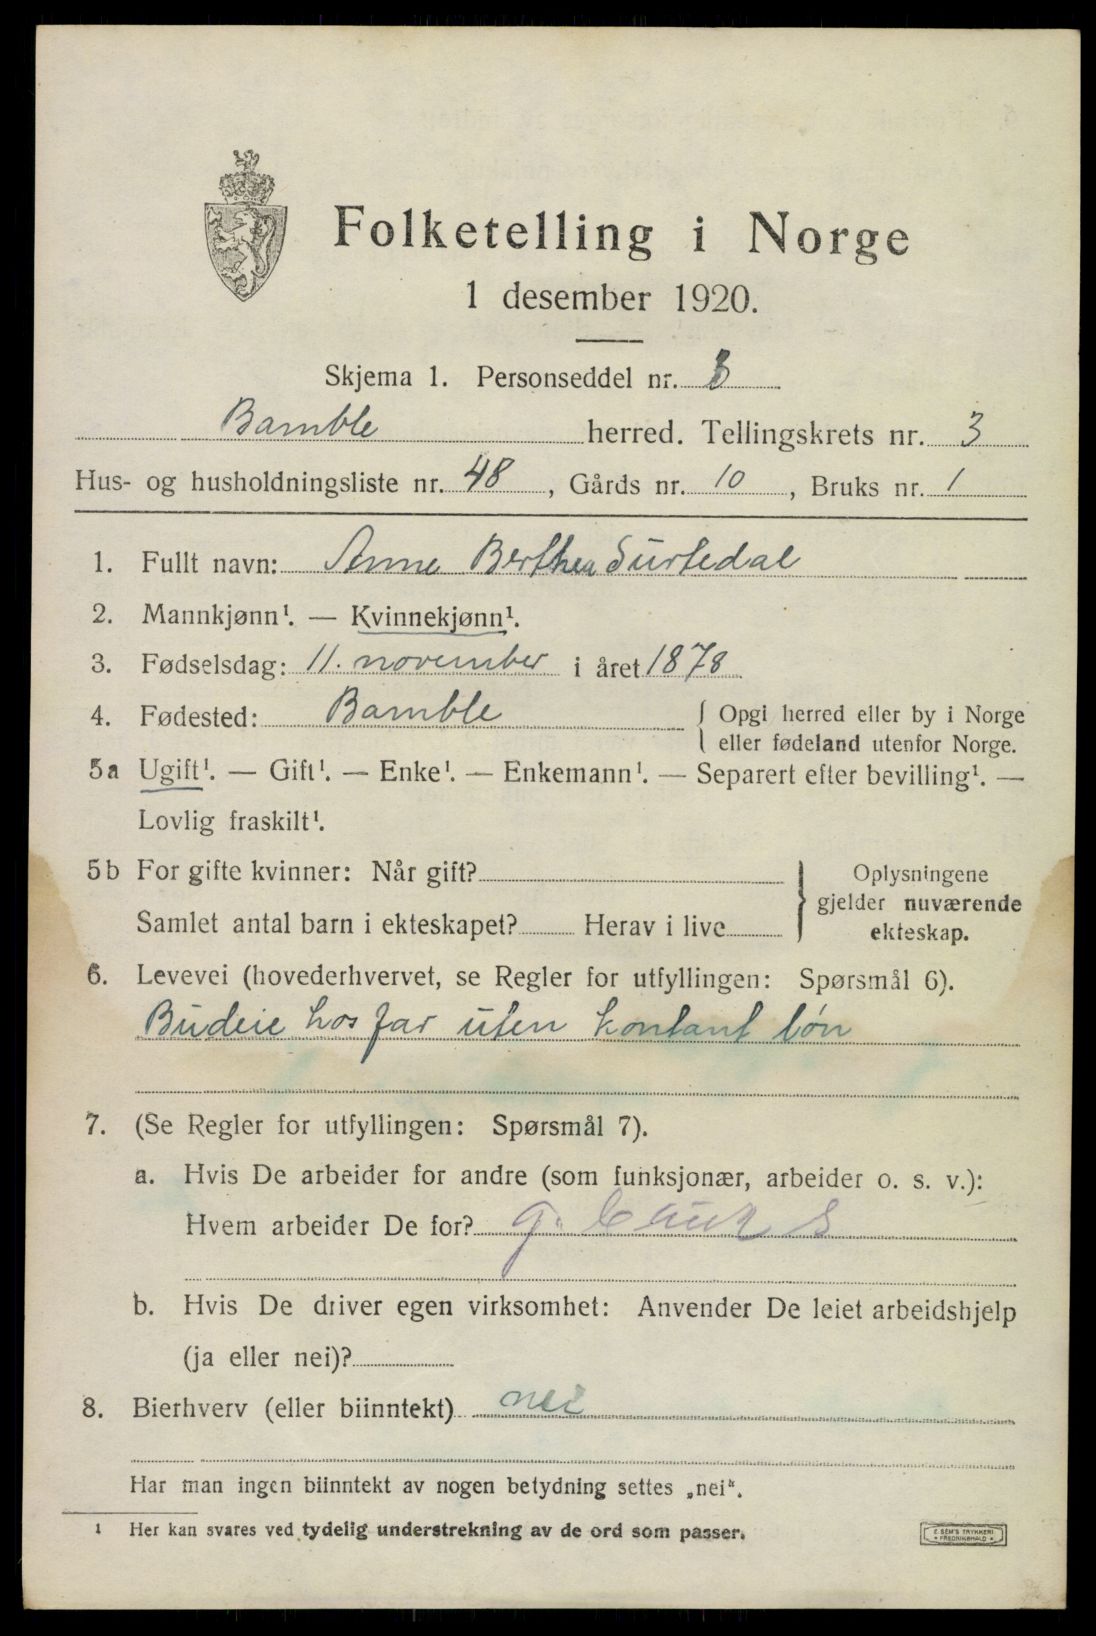 Folketelling i Norge
1 desember 1920.
Skjema 1. Personseddel nr. 3
Bamble herred. Tellingskrets nr. 3
Hus- og husholdningsliste nr. 48, Gårds nr. 10, Bruks nr. 1
1. Fullt navn: Anne Berthea Surtedal
2. Mannkjønn¹. — Kvinnekjønn¹.
3. Fødselsdag: 11. november i året 1878
4. Fødested: Bamble { Opgi herred eller by i Norge
eller fødeland utenfor Norge.
5a Ugift¹. — Gift¹. — Enke¹. — Enkemann¹. — Separert efter bevilling¹. —
Lovlig fraskilt¹.
5b For gifte kvinner: Når gift?
Samlet antal barn i ekteskapet? Herav i live
} Oplysningene
gjelder nuværende
ekteskap.
6. Levevei (hovederhvervet, se Regler for utfyllingen: Spørsmål 6).
Budeie hos far uten kontant løn
7. (Se Regler for utfyllingen: Spørsmål 7).
a. Hvis De arbeider for andre (som funksjonær, arbeider o. s. v.):
Hvem arbeider De for?
b. Hvis De driver egen virksomhet: Anvender De leiet arbeidshjelp
(ja eller nei)?
8. Bierhverv (eller biinntekt) nei
Har man ingen biinntekt av nogen betydning settes „nei“.
¹ Her kan svares ved tydelig understrekning av de ord som passer.
E. SEM'S TRYKKERI
* FREDRIKSHALD *